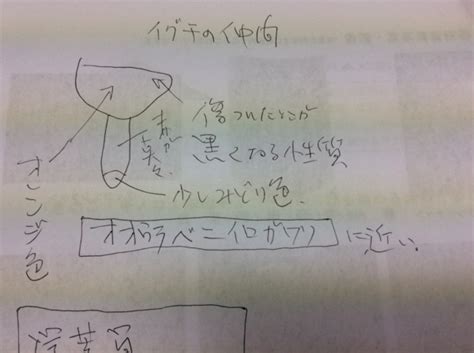 イグチの仲間
傷ついたところが
黒くなる性質
オレンジ色
少しみどり色
オオウラベニイロガワリ
に近い